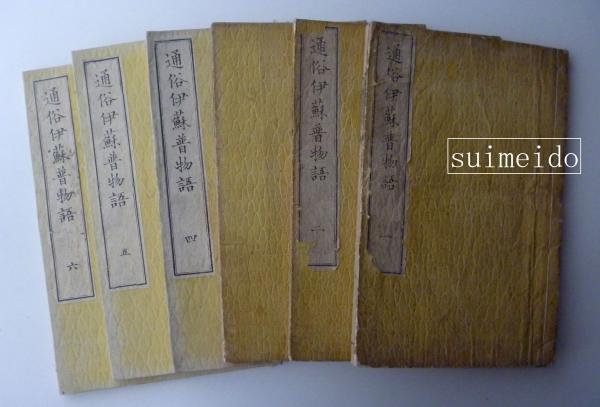 通俗伊蘇普物語 一
通俗伊蘇普物語 二
通俗伊蘇普物語 四
通俗伊蘇普物語 五
通俗伊蘇普物語 六
suimeido